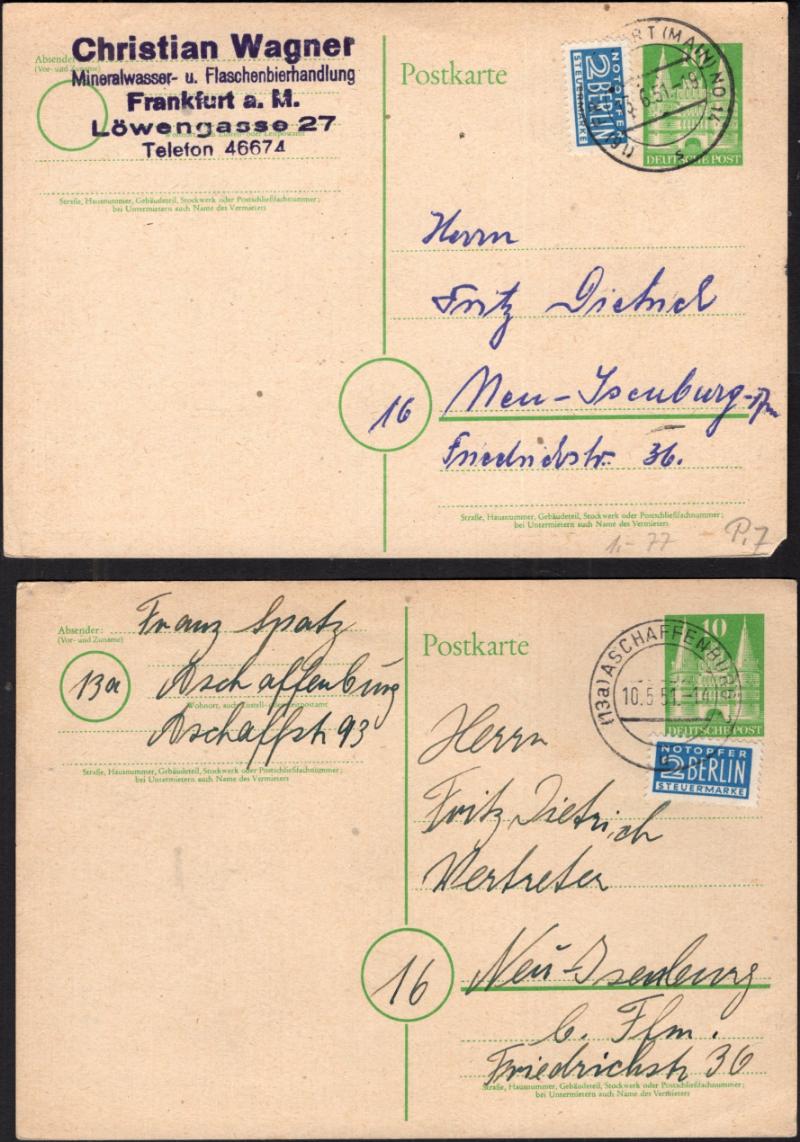 Christian Wagner
Mineralwasser- u. Flaschenbierhandlung
Frankfurt a. M.
Löwengasse 27
Telefon 46674
Absender
Straße, Hausnummer, Gebäudeteil, Stockwerk oder Postschließfachnummer;
bei Untermietern auch Name des Vermieters
Postkarte
NOTOPFER
2 BERLIN
STEUERMARKE
DEUTSCHE POST
Herrn
Fritz Dietrich
16
Neu-Isenburg
Friedrichstr. 36.
Straße, Hausnummer, Gebäudeteil, Stockwerk oder Postschließfachnummer;
bei Untermietern auch Name des Vermieters
1,- 77
P.7
Absender:
(Vor- und Zuname)
Franz Spatz
13a
Aschaffenburg
Aschaffstr 93
Straße, Hausnummer, Gebäudeteil, Stockwerk oder Postschließfachnummer;
bei Untermietern auch Name des Vermieters
Postkarte
10
DEUTSCHE POST
(13a) ASCHAFFENBURG
10.5.51.-14
NOTOPFER
2 BERLIN
STEUERMARKE
Herrn
Fritz Dietrich
Vertreter
16
Neu-Isenburg
b. Ffm.
Friedrichstr 36
Straße, Hausnummer, Gebäudeteil, Stockwerk oder Postschließfachnummer;
bei Untermietern auch Name des Vermieters